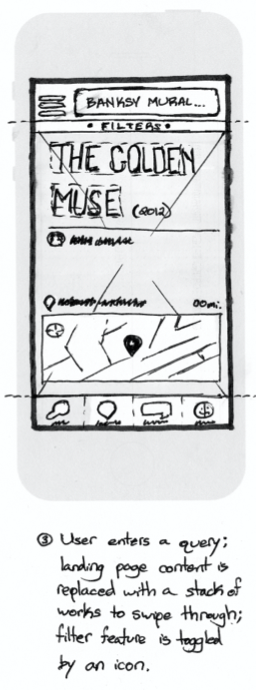 BANKSY MURAL...
• FILTERS •
THE GOLDEN
MUSE (2012)
00mi.
③ User enters a query;
landing page content is
replaced with a stack of
works to swipe through;
filter feature is toggled
by an icon.